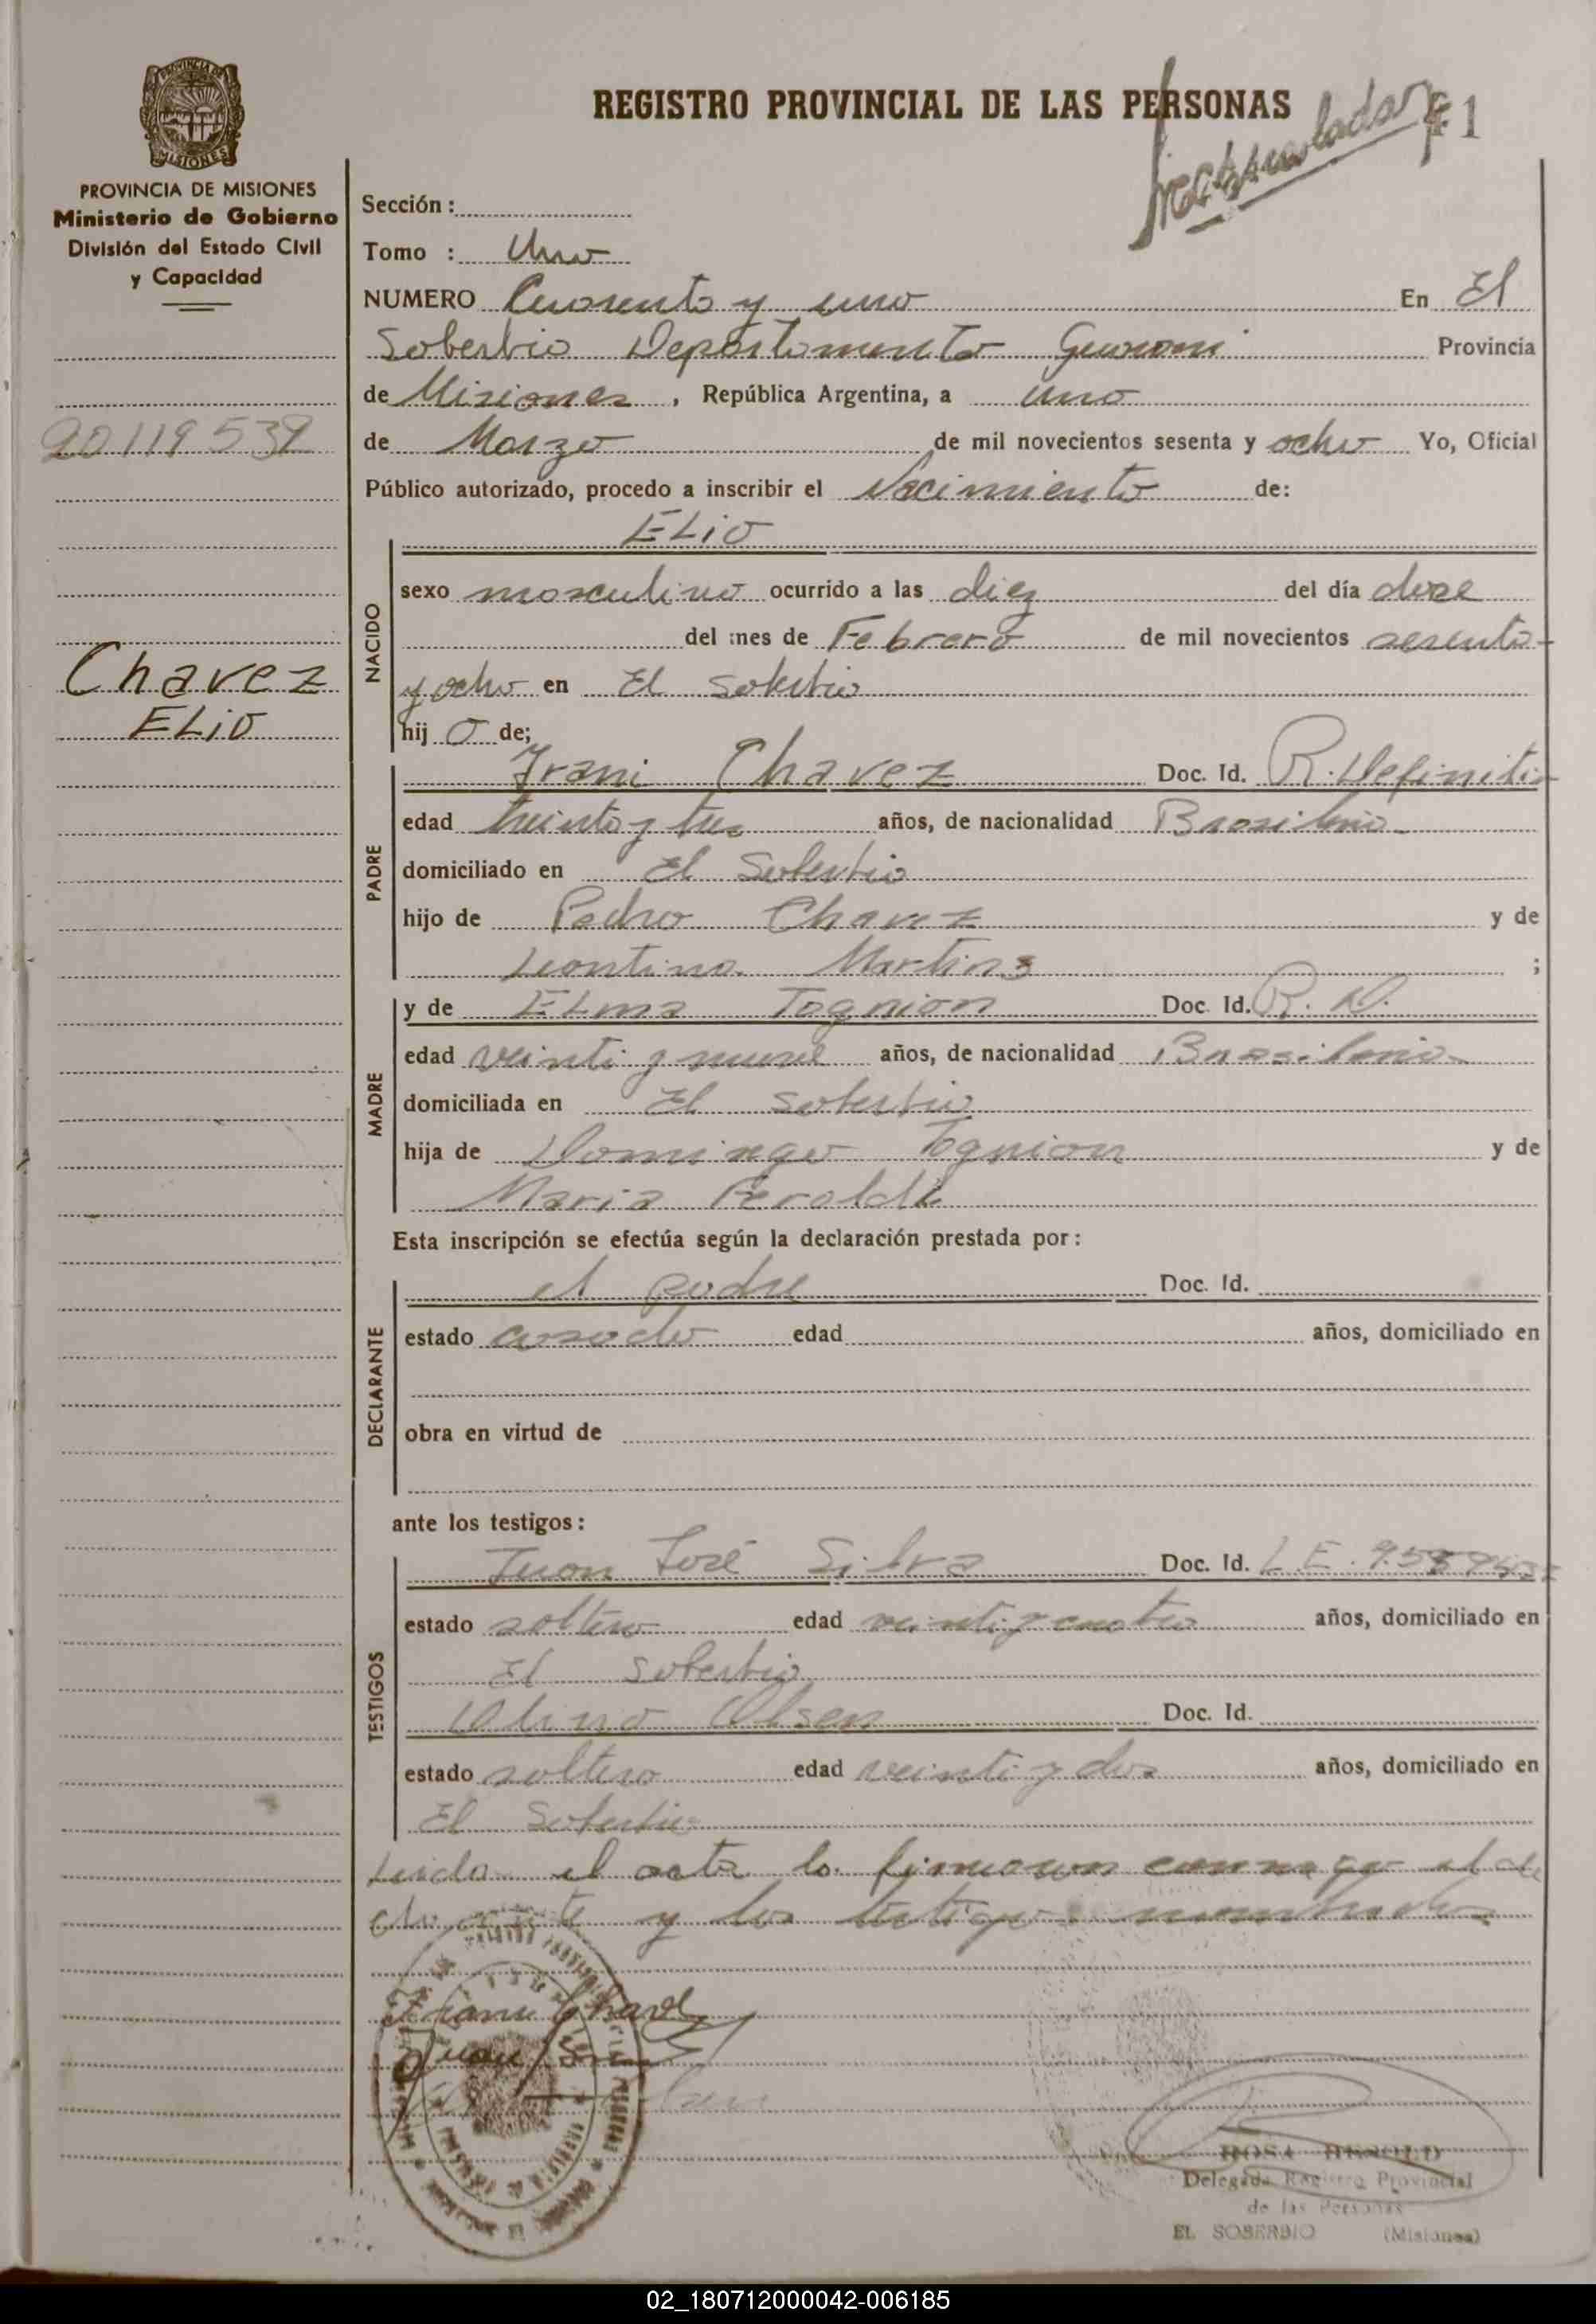 REGISTRO PROVINCIAL DE LAS PERSONAS
41
PROVINCIA DE MISIONES
Ministerio de Gobierno
División del Estado Civil
y Capacidad
20119539
Chavez
ELiO
Sección :
Tomo : Uno
NUMERO Cuarenta y uno En El
Soberbio Departamento Guarani Provincia
de Misiones , República Argentina, a uno
de Marzo de mil novecientos sesenta y ocho Yo, Oficial
Público autorizado, procedo a inscribir el Nacimiento de:
ELiO
NACIDO
sexo masculino ocurrido a las diez del día doce
del mes de Febrero de mil novecientos sesenta
y ocho en El Soberbio
hij o de;
PADRE
Irani Chavez Doc. Id. R. Definitiv
edad treinta y tres años, de nacionalidad Brasileña
domiciliado en El Soberbio
hijo de Pedro Chavez y de
Leontina Martins ;
MADRE
y de ELma Tognion Doc. Id. R. D.
edad veinti y nueve años, de nacionalidad Brasileña
domiciliada en El Soberbio
hija de Domingo Tognion y de
Maria Feraldi
Esta inscripción se efectúa según la declaración prestada por :
DECLARANTE
el padre Doc. Id.
estado casado edad años, domiciliado en
obra en virtud de
ante los testigos :
TESTIGOS
Juan José Silva Doc. Id. L E.
estado soltero edad veinti y cuatro años, domiciliado en
El Soberbio
Olsen Doc. Id.
estado soltero edad veinti y dos años, domiciliado en
El Soberbio
Leida el acta la firmaron conmigo el de
clarante y los testigos nombrados
Irani Chavez
Juan
ROSA
Delegada Registro Provincial
de las Personas
EL SOBERBIO (Misiones)
02_180712000042-006185